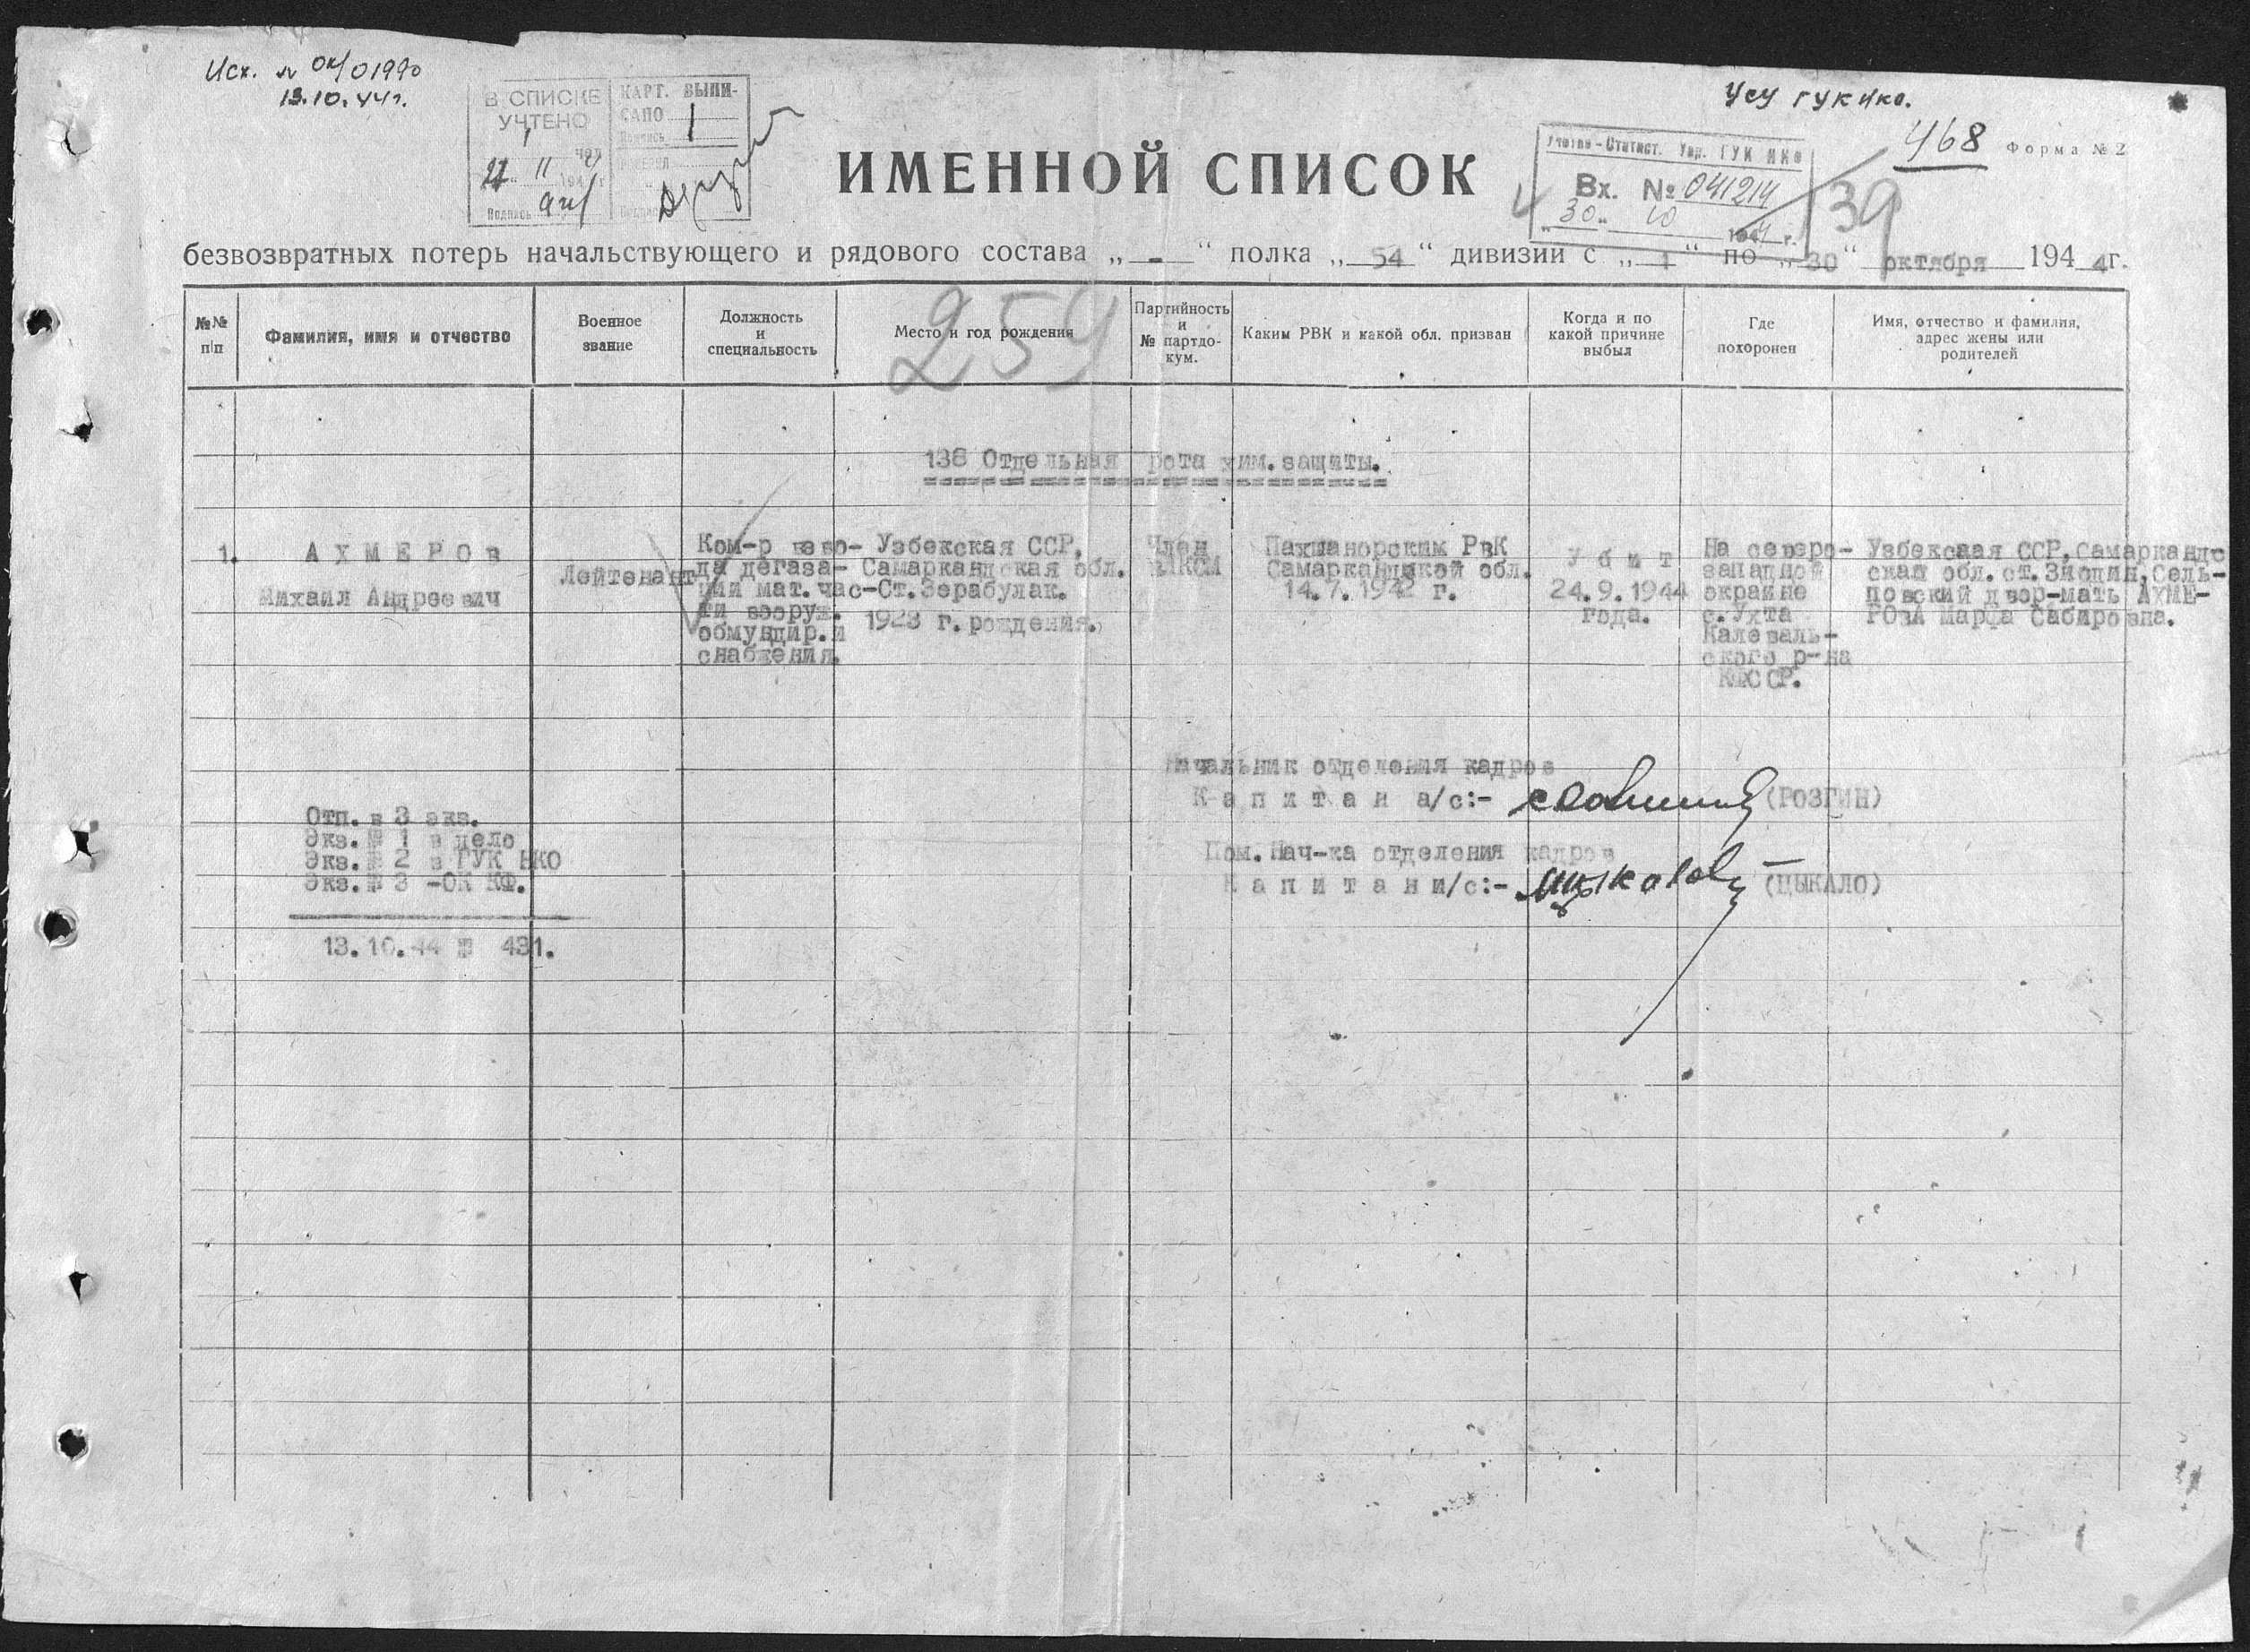 Исх. № ОК/01990
13.10.44г.
В СПИСКЕ
УЧТЕНО
1 чел
27 11 194 г
Подпись
КАРТ. ВЫПИ-
САНО 1
Подпись
Усу ГУК НКО.
Учетно-Статист. Упр. ГУК НКО
Вх. № 041214
"30" 10 1944 г.
468
39
Форма № 2
ИМЕННОЙ СПИСОК
безвозвратных потерь начальствующего и рядового состава „ - “ полка „ 54 “ дивизии с „ 1 “ по „ 30 “ октября 194 4 г.
259
№№ п/п
Фамилия, имя и отчество
Военное звание
Должность и специальность
Место и год рождения
Партийность и № партдо-кум.
Каким РВК и какой обл. призван
Когда и по какой причине выбыл
Где похоронен
Имя, отчество и фамилия, адрес жены или родителей
138 Отдельная рота хим.защиты.
1.
АХМЕРОв
Михаил Андреевич
Лейтенант
Ком-р взво-
да дегаза-
ции мат.час-
ти вооруж.
обмундир.и
снабжения.
Узбекская ССР,
Самаркандская обл.
Ст.Зерабулак.
1923 г.рождения.
Член
ВЛКСМ
Пахшанорским РвК
Самаркандской обл.
14.7.1942 г.
Убит
24.9.1944
года.
На северо-
западной
окраине
с.Ухта
Калеваль-
ского р-на
КФССР.
Узбекская ССР,Самаркандс
ская обл.ст.Зиодин,Сель-
повский двор-мать АХМЕ-
РОвА Марфа Сабировна.
Начальник отделения кадров
Капитан а/с:- (РОЗГИН)
Пом.Нач-ка отделения кадров
Капитан и/с:- Цыкало (ЦЫКАЛО)
Отп. в 3 экз.
Экз.№ 1 в дело
Экз.№ 2 в ГУК НКО
Экз.№ 3 -ОК КФ.
13.10.44 № 431.